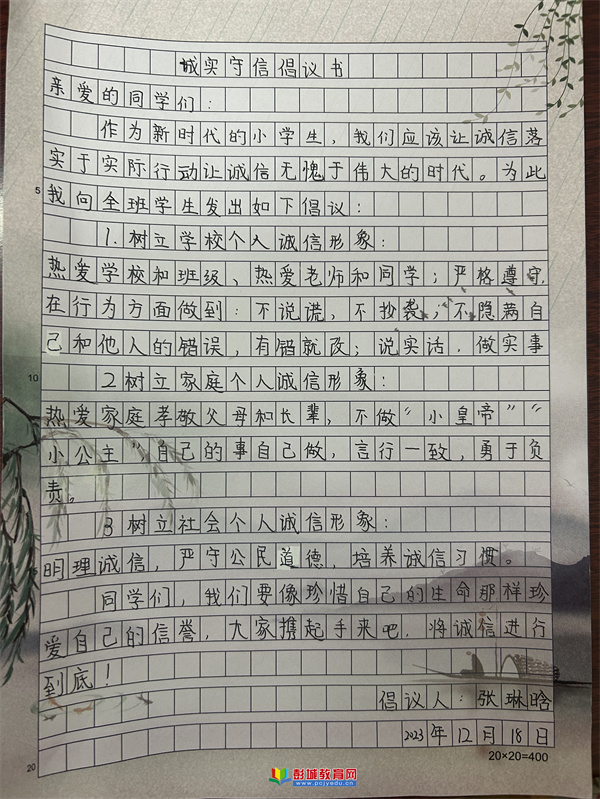 诚实守信倡议书
亲爱的同学们：
作为新时代的小学生，我们应该让诚信落
实于实际行动让诚信无愧于伟大的时代。为此
5
我向全班学生发出如下倡议：
1.树立学校个人诚信形象：
热爱学校和班级、热爱老师和同学；严格遵守，
在行为方面做到：不说谎，不抄袭；不隐满自
己和他人的错误，有错就改；说实话，做实事
10
2树立家庭个人诚信形象：
热爱家庭孝敬父母和长辈，不做“小皇帝”“
小公主”自己的事自己做，言行一致，勇于负
责。
3树立社会个人诚信形象：
明理诚信，严守公民道德，培养诚信习惯。
同学们，我们要像珍惜自己的生命那样珍
爱自己的信誉，大家携起手来吧，将诚信进行
到底！
倡议人：张琳晗
2023年12月18日
20×20=400
20
彭城教育网
www.pcjyedu.cn